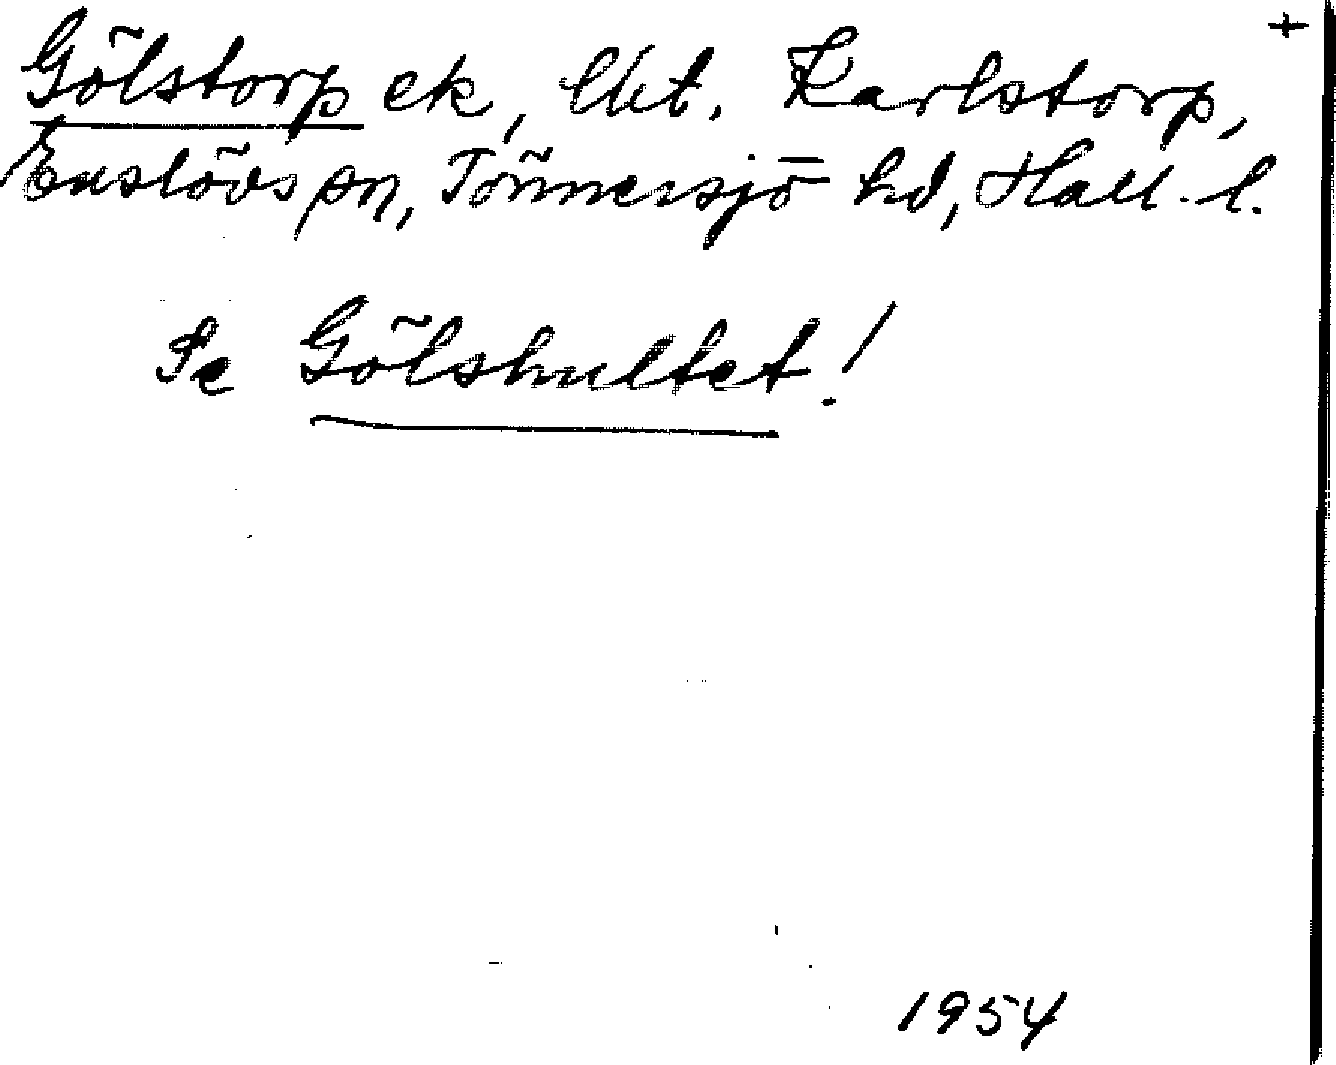 +
Gölstorp ek, lht. Karlstorp,
Enslövs sn, Tönnersjö hd, Hall. l.
Se Gölshultet!
1954